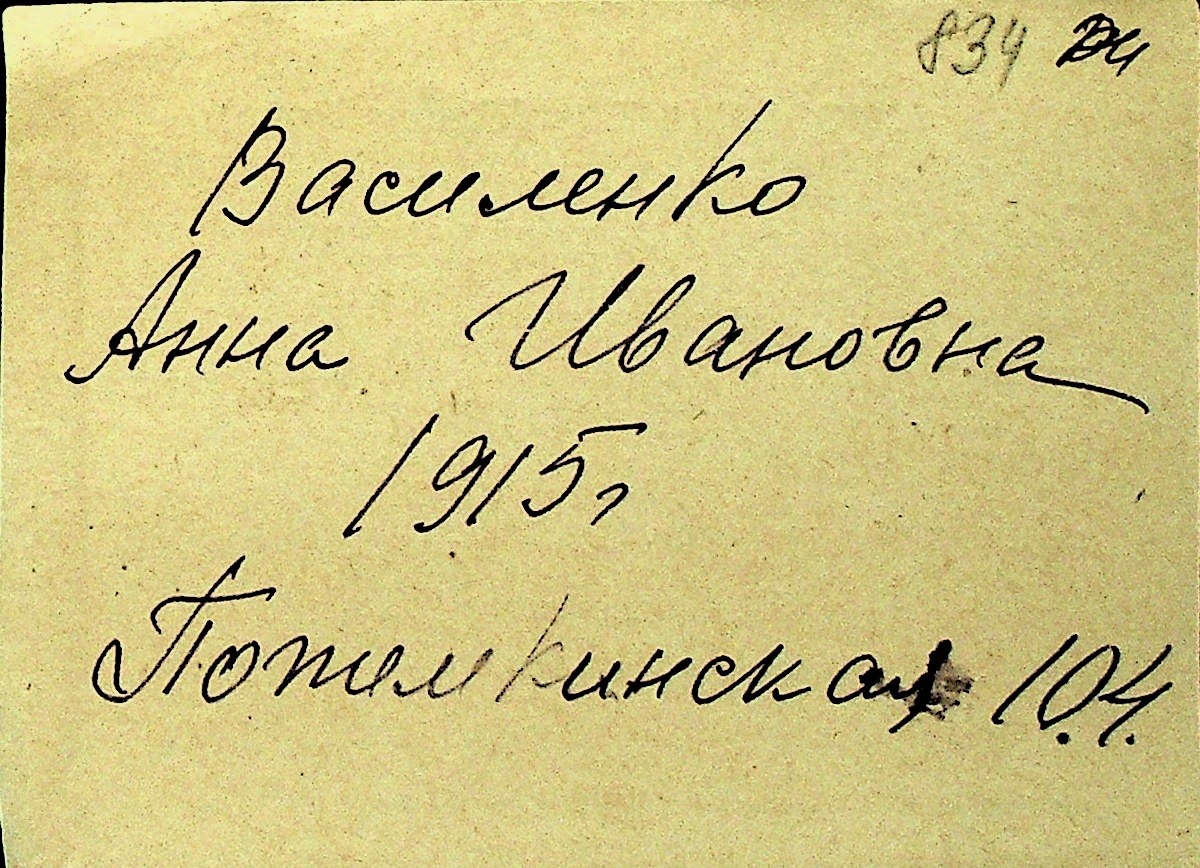 834
Василенко
Анна Ивановна
1915г
Потемкинская 104.